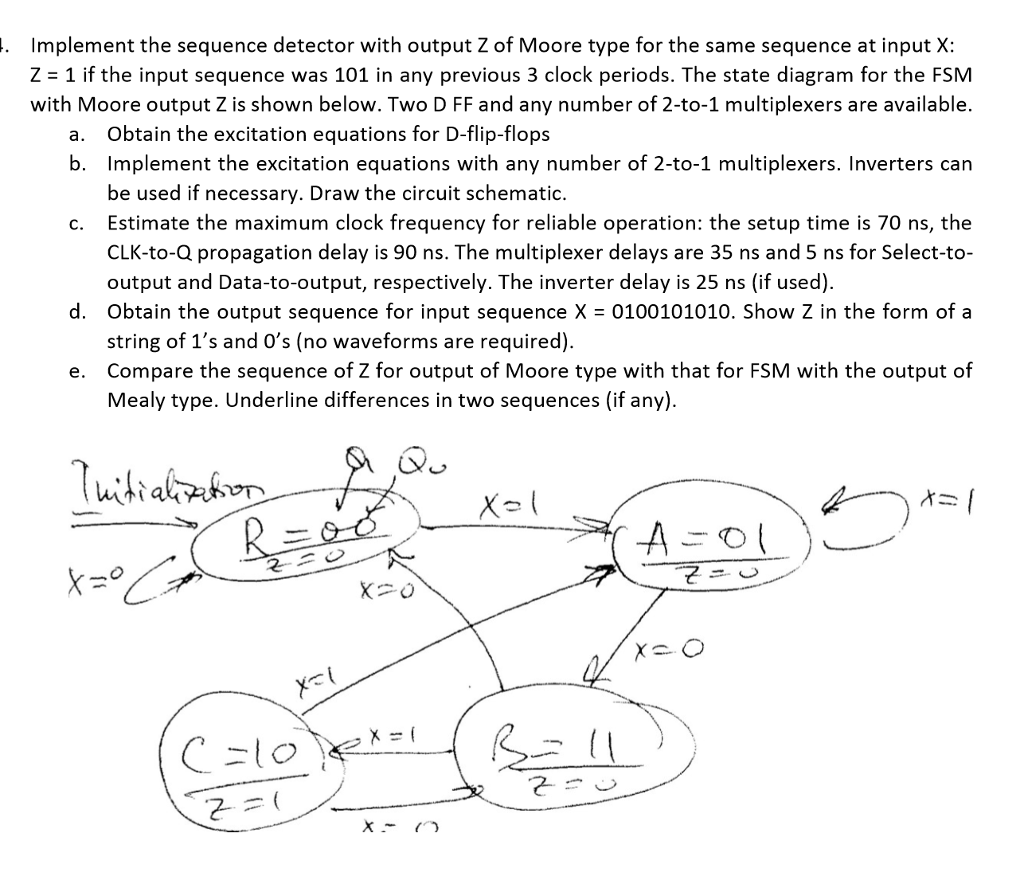 . Implement the sequence detector with output Z of Moore type for the same sequence at input X:
Z = 1 if the input sequence was 101 in any previous 3 clock periods. The state diagram for the FSM
with Moore output Z is shown below. Two D FF and any number of 2-to-1 multiplexers are available.
a. Obtain the excitation equations for D-flip-flops
b. Implement the excitation equations with any number of 2-to-1 multiplexers. Inverters can
be used if necessary. Draw the circuit schematic.
c. Estimate the maximum clock frequency for reliable operation: the setup time is 70 ns, the
CLK-to-Q propagation delay is 90 ns. The multiplexer delays are 35 ns and 5 ns for Select-to-
output and Data-to-output, respectively. The inverter delay is 25 ns (if used).
d. Obtain the output sequence for input sequence X = 0100101010. Show Z in the form of a
string of 1's and 0's (no waveforms are required).
e. Compare the sequence of Z for output of Moore type with that for FSM with the output of
Mealy type. Underline differences in two sequences (if any).
Q1 Q0
Initialization
X=1
X=1
R=00
Z=0
A=01
Z=0
X=0
X=0
X=0
X=1
C=10
Z=1
X=1
B=11
Z=0
X=0